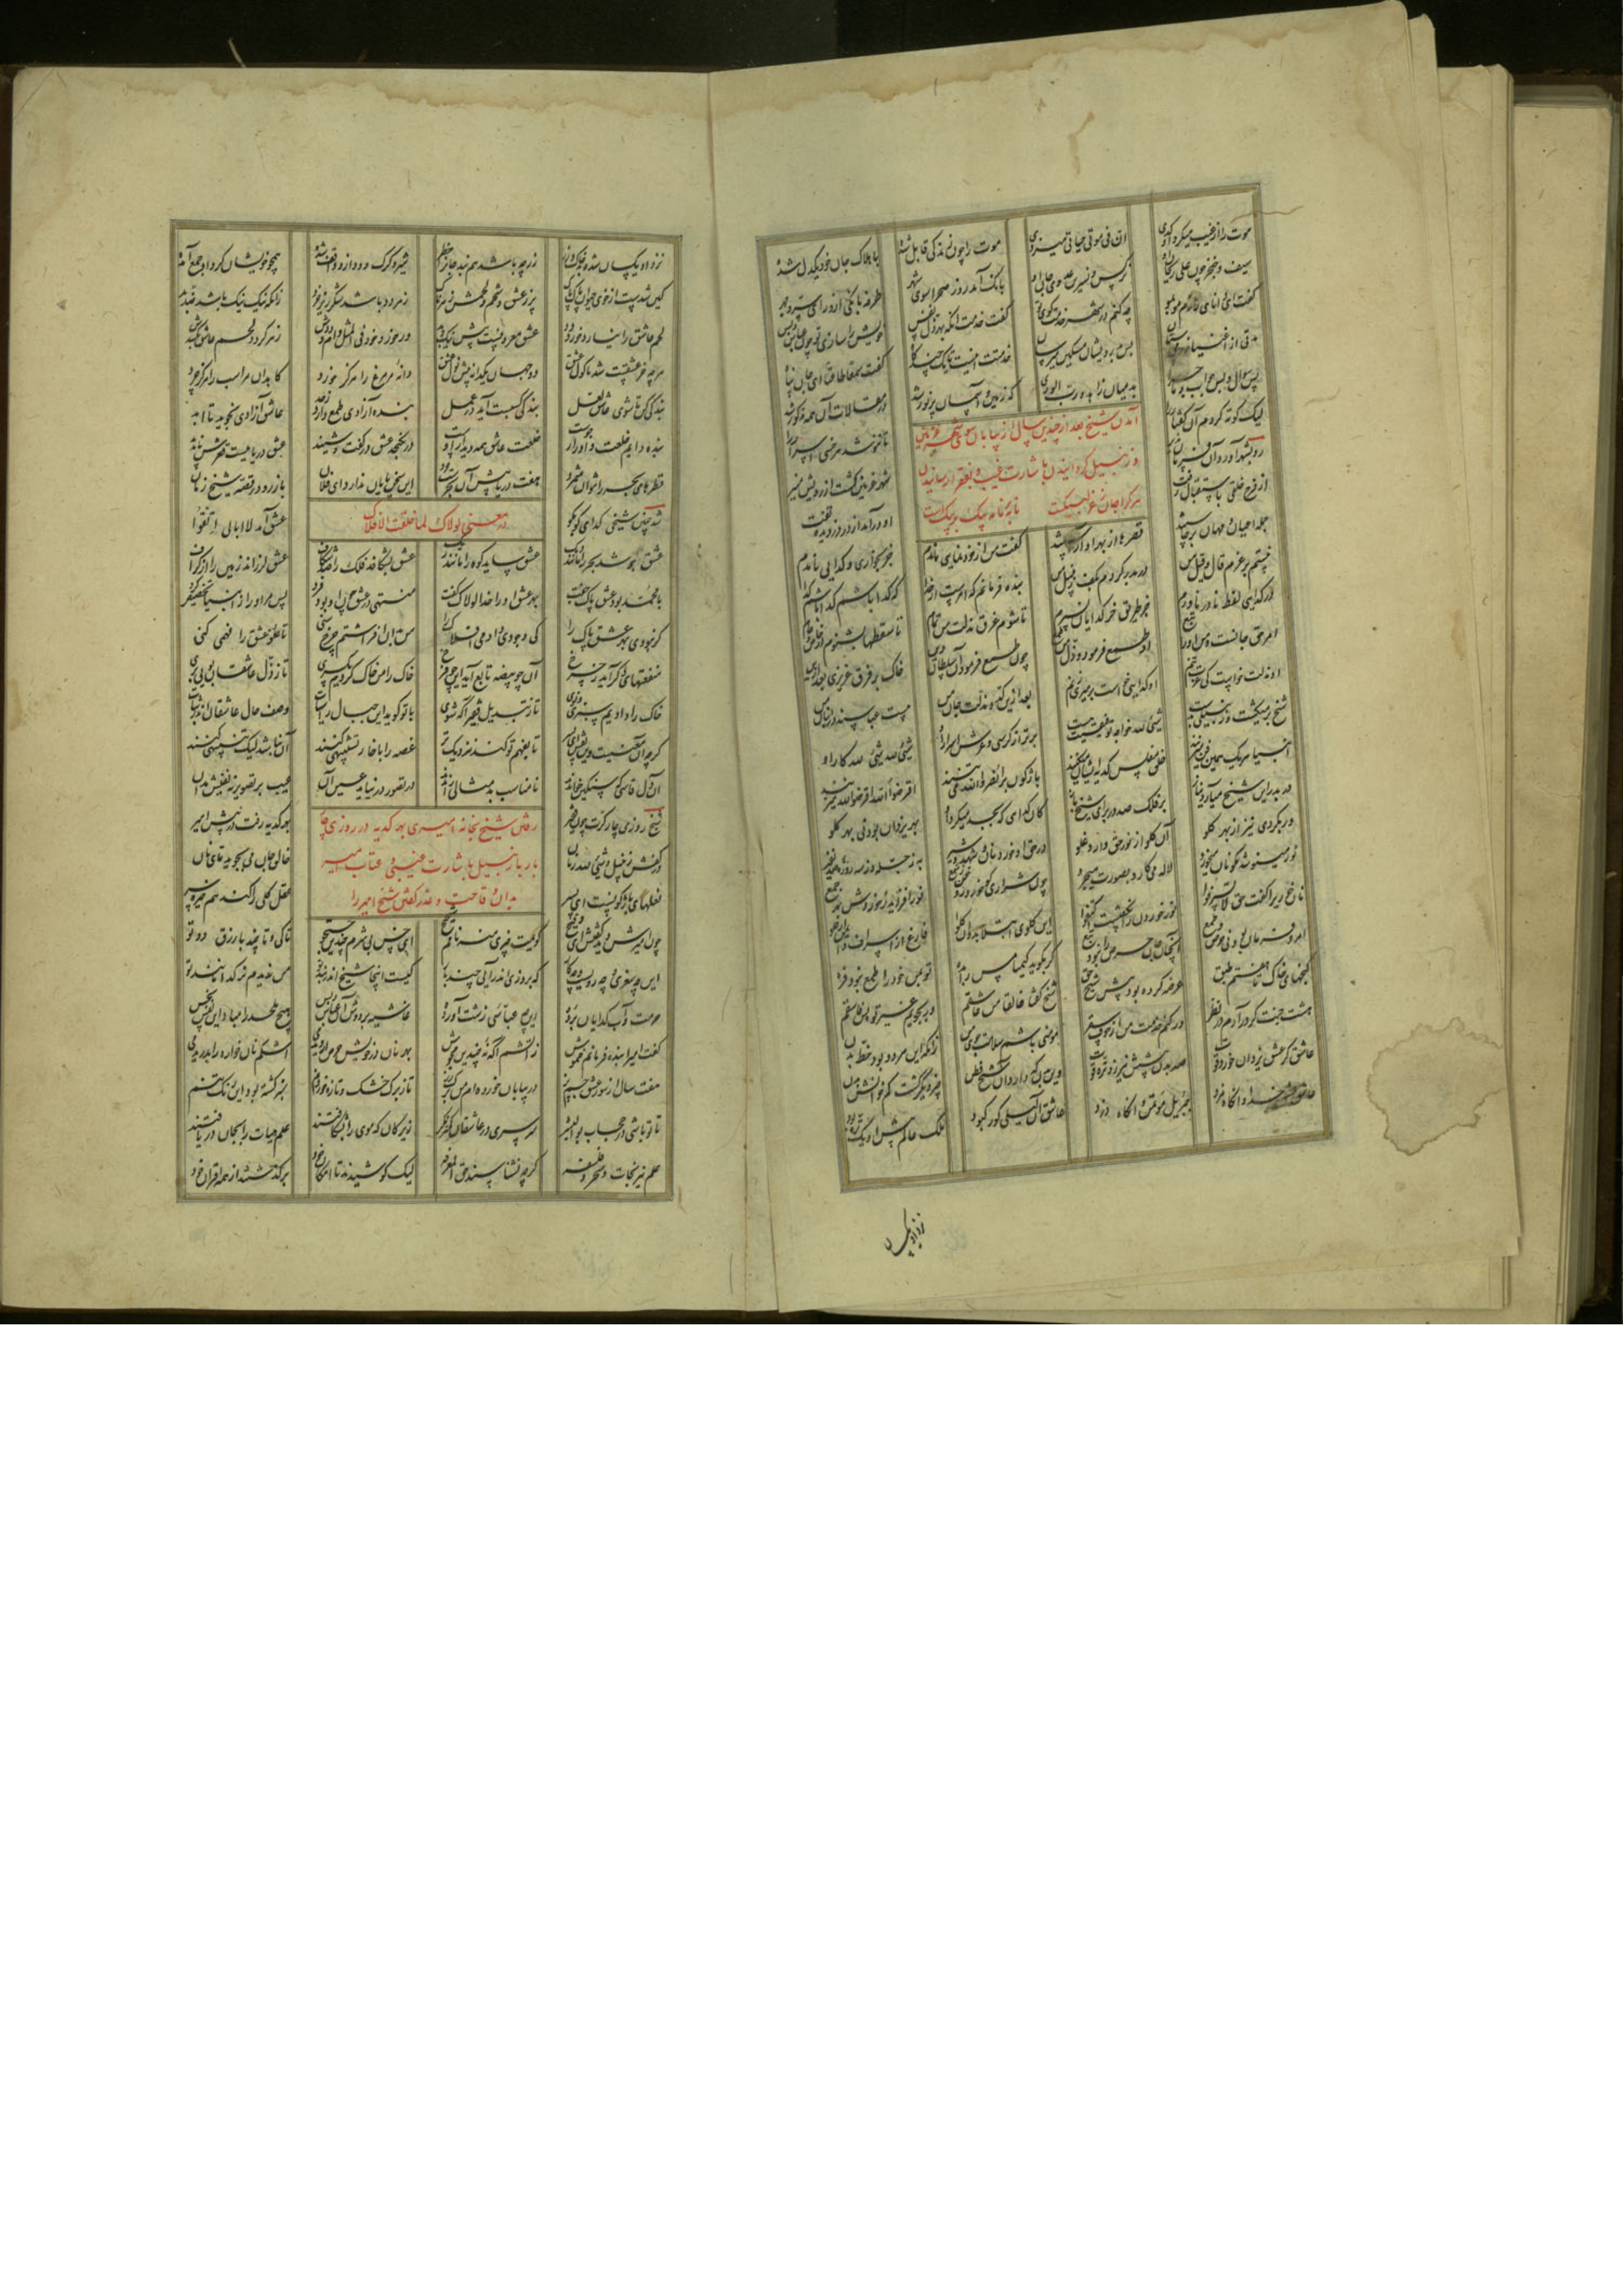 موت را از غیب میکرد او کدی ان فی موتی حیاتی میزدی موت را چون زندگی قابل شده با هلاک جان خود یکدل شده
سیف و خنجر چون علی ریحان او نرگس و نسرین عدوی جان او بانگ آمد رو ز صحرا سوی شهر طرفه بانگی از ورای سر و جهر
گفت ای دانای رازم مو بمو چه کنم در شهر از خدمت بگو گفت خدمت آنکه بهر ذل نفس خویش را سازی تو چون عباس دبس
مدتی از اغنیا زر می ستان پس بدرویشان مسکین میرسان خدمتت اینست تا یک چند گاه گفت سمعا طاعة ای جان پناه
بس سوال و بس جواب و ماجرا بد میان زاهد و رب الوری که زمین و آسمان پر نور شد در مقالات آن همه مذکور شد
لیک کوته کردم آن گفتار را تا ننوشد هر خسی اسرار را
آمدن شیخ بعد از چندین سال از بیابان سوی شهر غزنین
و زنبیل گردانیدن باشارت غیب و بفقرا رسانیدن
هر کرا جان عز لبیکست نامه بر نامه پیک بر پیکست
رو بشهر آورد آن فرمان پذیر شهر غزنین گشت از رویش منیر
از فرح خلقی باستقبال رفت او در آمد از در دزدیده تفت
جمله اعیان و مهان برخاستند قصرها از بهر او آراستند گفت من از خودنمایی نامدم جز بخواری و گدایی نامدم
نیستم بر عزم قال و قیل من در بدر گردم بکف زنبیل من بنده فرمانم که امرست از خدا که گدا باشم گدا باشم گدا
در گدایی لفظ نادر ناورم جز طریق خس گدایان نسپرم تا شوم غرق مذلت من تمام تا سقطها بشنوم از خاص و عام
امر حق جانست و من او را تبع او طمع فرمود ذل من طمع چون طمع فرمود آن سلطان دین خاک بر فرق عزیزی بعد ازین
او مذلت خواست کی عزت تنم او گدایی خواست کی میری کنم بعد ازین کدیه و مذلت جان من بیست عباسند در انبان من
شیخ بر میگشت و زنبیلی بدست شیء لله خواجه توفیقیت هست برتر از کرسی و عرش اسرار او شیء لله شیء لله کار او
انبیا هر یک همین فن میزنند خلق مفلس کدیه ایشان میکنند باژگون بر انصروا الله می تنند اقرضوا الله اقرضوا الله میزنند
در بدر این شیخ میآرد نیاز بر فلک صد در برای شیخ باز کان گدایی که بجد میکرد او بهر یزدان بود نی بهر گلو
ور بکردی نیز از بهر گلو آن گلو از نور حق دارد غلو در حق او خورد نان و شهد و شیر به ز چله وز سه روزه صد فقیر
نور مینوشد مگو نان میخورد لاله میکارد بصورت میچرد چون شراری کو خورد روغن ز شمع نور افزاید ز خوردش بهر جمع
نان خوری را گفت حق لا تسرفوا نور خوردن را نگفتست اکتفوا این گلوی ابتلا بد وان گلو فارغ از اسراف و ایمن از غلو
امر و فرمان بود نی حرص و طمع آنچنان جان حرص را نبود تبع گر بگوید کیمیا مس را بده تو بمن خود را طمع نبود فره
گنجهای خاک تا هفتم طبق عرضه کرده بود پیش شیخ حق شیخ گفتا خالقا من عاشقم ور بجویم غیر تو من فاسقم
هشت جنت گر درآرم در نظر ور کنم خدمت من از خوف سقر مومنی باشم سلامت جوی من زانکه این هر دو بود حظ بدن
عاشقی کز عشق یزدان خورد قوت صد بدن پیشش نیرزد تره توت وین بدن که دارد آن شیخ فطن چیز دیگر گشت کم خوانش بدن
عاشق عشق خدا وانگاه مزد جبرئیل موتمن وانگاه دزد عاشق آن لیلی کور کبود ملک عالم پیش او یک تره بود
نزد او یکسان
نزد او یکسان شده بد خاک و زر زر چه باشد هم نبد جان را خطر شیر و گرگ و دد ازو واقف شده همچو خویشان گرد او جمع آمده
کین شدست از خوی حیوان پاک پاک پر ز عشق و شحم و لحمش زهرناک زهر دد باشد شکر ریز خرد زانکه نیک نیک باشد ضد بد
لحم عاشق را نیارد خورد دد عشق معروفست پیش نیک و بد ور خورد خود فی المثل دام و ددش زهر گردد لحم عاشق بکشدش
هر چه جز عشقست شد ماکول عشق دو جهان یکدانه پیش نول عشق دانه مر مرغ را هرگز خورد کاهدان مر اسب را هرگز چرد
بندگی کن تا شوی عاشق لعل بندگی کسبست آید در عمل بنده آزادی طمع دارد ز جد عاشق آزادی نجوید تا ابد
بنده دایم خلعت و ادرار جوست خلعت عاشق همه دیدار اوست در نگنجد عشق در گفت و شنید عشق دریاییست قعرش ناپدید
قطرهای بحر را نتوان شمرد هفت دریا پیش آن بحرست خرد این سخن پایان ندارد ای فلان باز رو در قصه شیخ زمان
شد چنین شیخی گدای کو بکو عشق آمد لاابالی اتقوا
در معنی لولاک لما خلقت الافلاک
عشق جوشد بحر را مانند دیگ عشق ساید کوه را مانند ریگ عشق بشکافد فلک را صد شکاف عشق لرزاند زمین را از گزاف
با محمد بود عشق پاک جفت بهر عشق او را خدا لولاک گفت منتهی در عشق چون او بود فرد پس مر او را ز انبیا تخصیص کرد
گر نبودی بهر عشق پاک را کی وجودی دادمی افلاک را من بدان افراشتم چرخ سنی تا علو عشق را فهمی کنی
منفعتهای دگر آید ز چرخ آن چو بیضه تابع آید این چو فرخ خاک را من خاک کردم یکسری تا ز ذل عاشقان بویی بری
خاک را دادیم سبزی و نوی تا ز تبدیل فقیر آگه شوی با تو گوید این جبال راسیات وصف حال عاشقان اندر ثبات
گرچه آن معنیست و این نقش ای پسر تا بفهم تو کند نزدیکتر غصه را با خار تشبیهی کنند آن نباشد لیک تنبیهی کنند
آن دل قاسی که سنگش خواندند نامناسب بد مثالی راندند در تصور در نیاید عین آن عیب بر تصویر نه نفیش مدان
شیخ روزی چار کرت چون فقیر بهر کدیه رفت در پیش امیر
رفتن شیخ بخانه امیری بهر کدیه در روزی چار
بار با زنبیل باشارت غیبی و عتاب امیر
بدان وقاحت و عذر گفتن شیخ امیر را
در کفش زنبیل و شیء لله زنان خالق جان می بجوید تای نان
نعلهای باژگونست ای پسر عقل کلی را کند هم خیره سر
چون امیرش دید گفتش ای وقیح گویمت چیزی منه نامم شحیح ای خس بی شرم چندین جست و جو تا کی و تا چند با رزق دو تو
این چه سغری و چه رویست و چه کار که بروزی اندر آیی چند بار کیست اینجا شیخ اندر بند تو من ندیدم نر گدا مانند تو
حرمت و آب گدایان برده این چه عباسی زشت آورده غاشیه بر دوش آن عباس دبس هیچ ملحد را مباد این نفس نحس
گفت امیرا بنده فرمانم خموش ز آتشم آگه نه چندین مجوش بهر نان در خویش حرص ار دیدمی اشکم نان خواره را بدریدمی
هفت سال از سوز عشق جسم پز در بیابان خورده ام من برگ رز تا ز برگ خشک و تازه خوردنم سبز گشته بود این رنگ تنم
تا تو باشی در حجاب بوالبشر سرسری در عاشقان کمتر نگر زیرکان که موی را بشکافتند علم هیات را بجان دریافتند
علم نیرنجات و سحر و فلسفه گرچه نشناسند حق المعرفه لیک کوشیدند تا امکان خود بر گذشتند از همه اقران خود